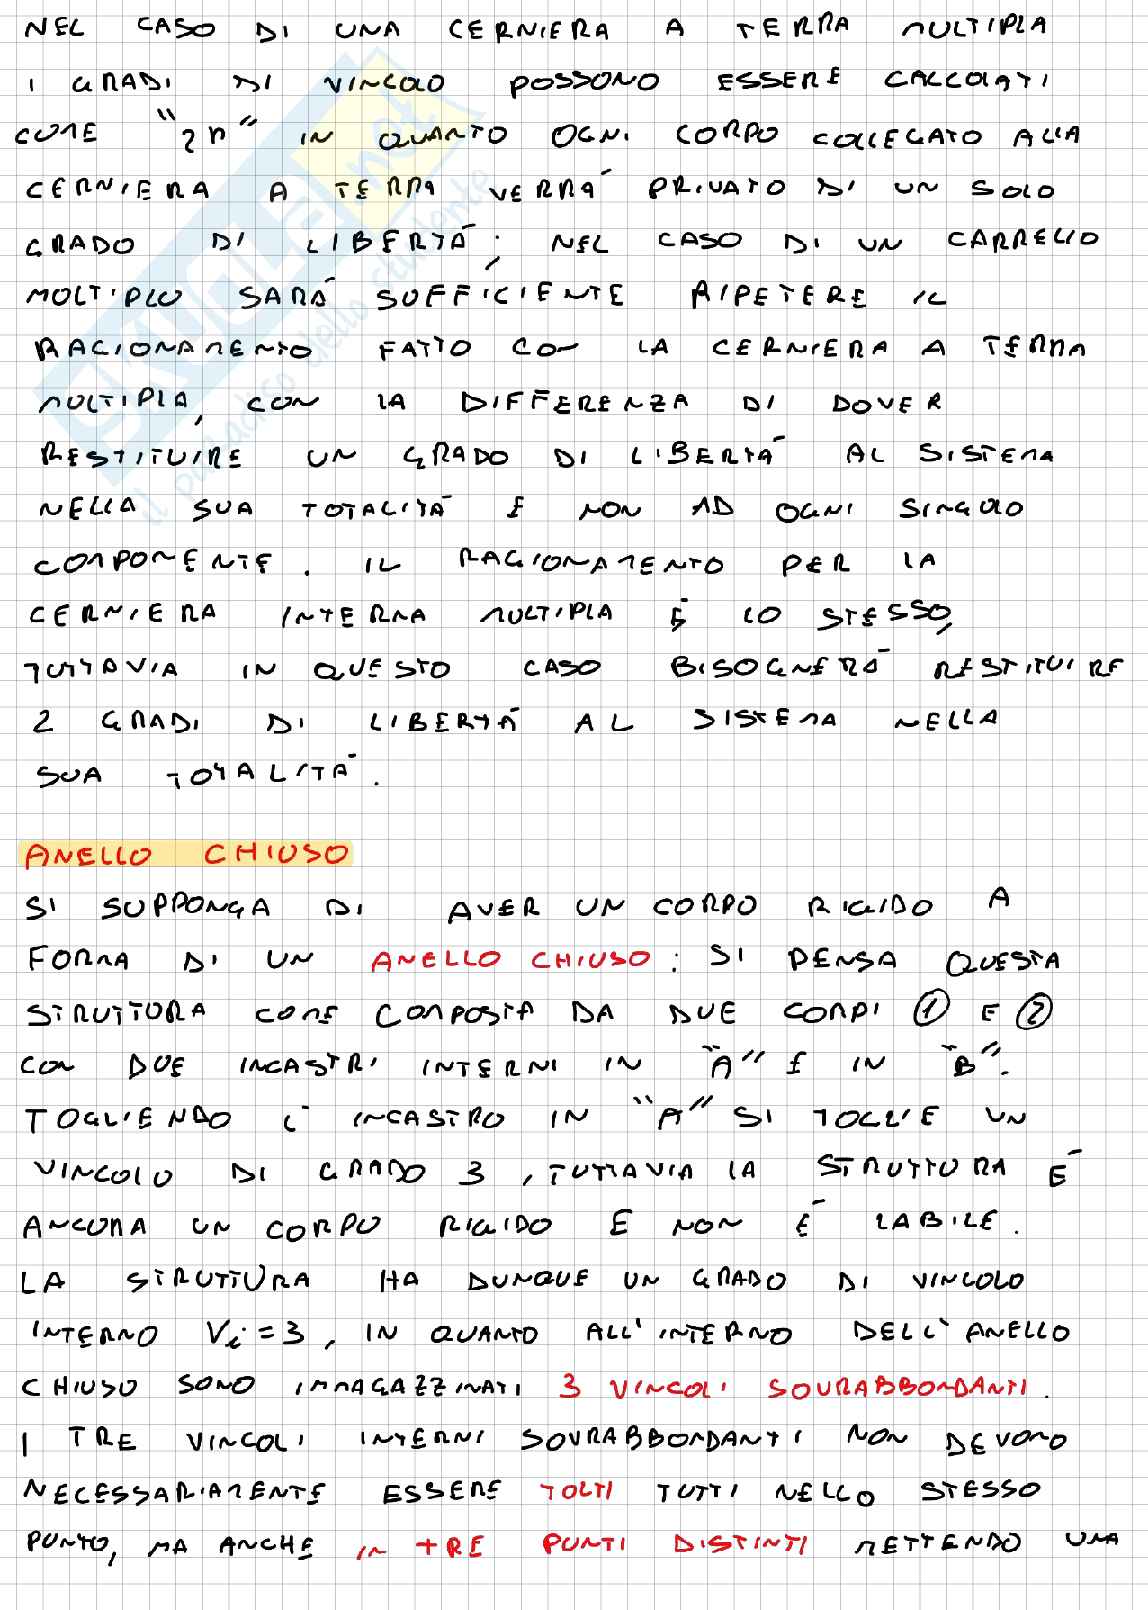 NEL CASO DI UNA CERNIERA A TERRA MULTIPLA
I GRADI DI VINCOLO POSSONO ESSERE CALCOLATI
COME "2n" IN QUANTO OGNI CORPO COLLEGATO ALLA
CERNIERA A TERRA VERRÀ PRIVATO DI UN SOLO
GRADO DI LIBERTÀ; NEL CASO DI UN CARRELLO
MOLTIPLO SARÀ SUFFICIENTE RIPETERE IL
RAGIONAMENTO FATTO CON LA CERNIERA A TERRA
MULTIPLA, CON LA DIFFERENZA DI DOVER
RESTITUIRE UN GRADO DI LIBERTÀ AL SISTEMA
NELLA SUA TOTALITÀ E NON AD OGNI SINGOLO
COMPONENTE. IL RAGIONAMENTO PER LA
CERNIERA INTERNA MULTIPLA È LO STESSO,
TUTTAVIA IN QUESTO CASO BISOGNERÀ RESTITUIRE
2 GRADI DI LIBERTÀ AL SISTEMA NELLA
SUA TOTALITÀ.
ANELLO CHIUSO
SI SUPPONGA DI AVER UN CORPO RIGIDO A
FORMA DI UN ANELLO CHIUSO: SI PENSA QUESTA
STRUTTURA COME COMPOSTA DA DUE CORPI ① E ②
CON DUE INCASTRI INTERNI IN "A" E IN "B".
TOGLIENDO L'INCASTRO IN "A" SI TOGLIE UN
VINCOLO DI GRADO 3, TUTTAVIA LA STRUTTURA È
ANCORA UN CORPO RIGIDO E NON È LABILE.
LA STRUTTURA HA DUNQUE UN GRADO DI VINCOLO
INTERNO Vi=3, IN QUANTO ALL'INTERNO DELL'ANELLO
CHIUSO SONO IMMAGAZZINATI 3 VINCOLI SOVRABBONDANTI.
I TRE VINCOLI INTERNI SOVRABBONDANTI NON DEVONO
NECESSARIAMENTE ESSERE TOLTI TUTTI NELLO STESSO
PUNTO, MA ANCHE IN TRE PUNTI DISTINTI METTENDO UNA
SKUOLA.net
il paradiso dello studente